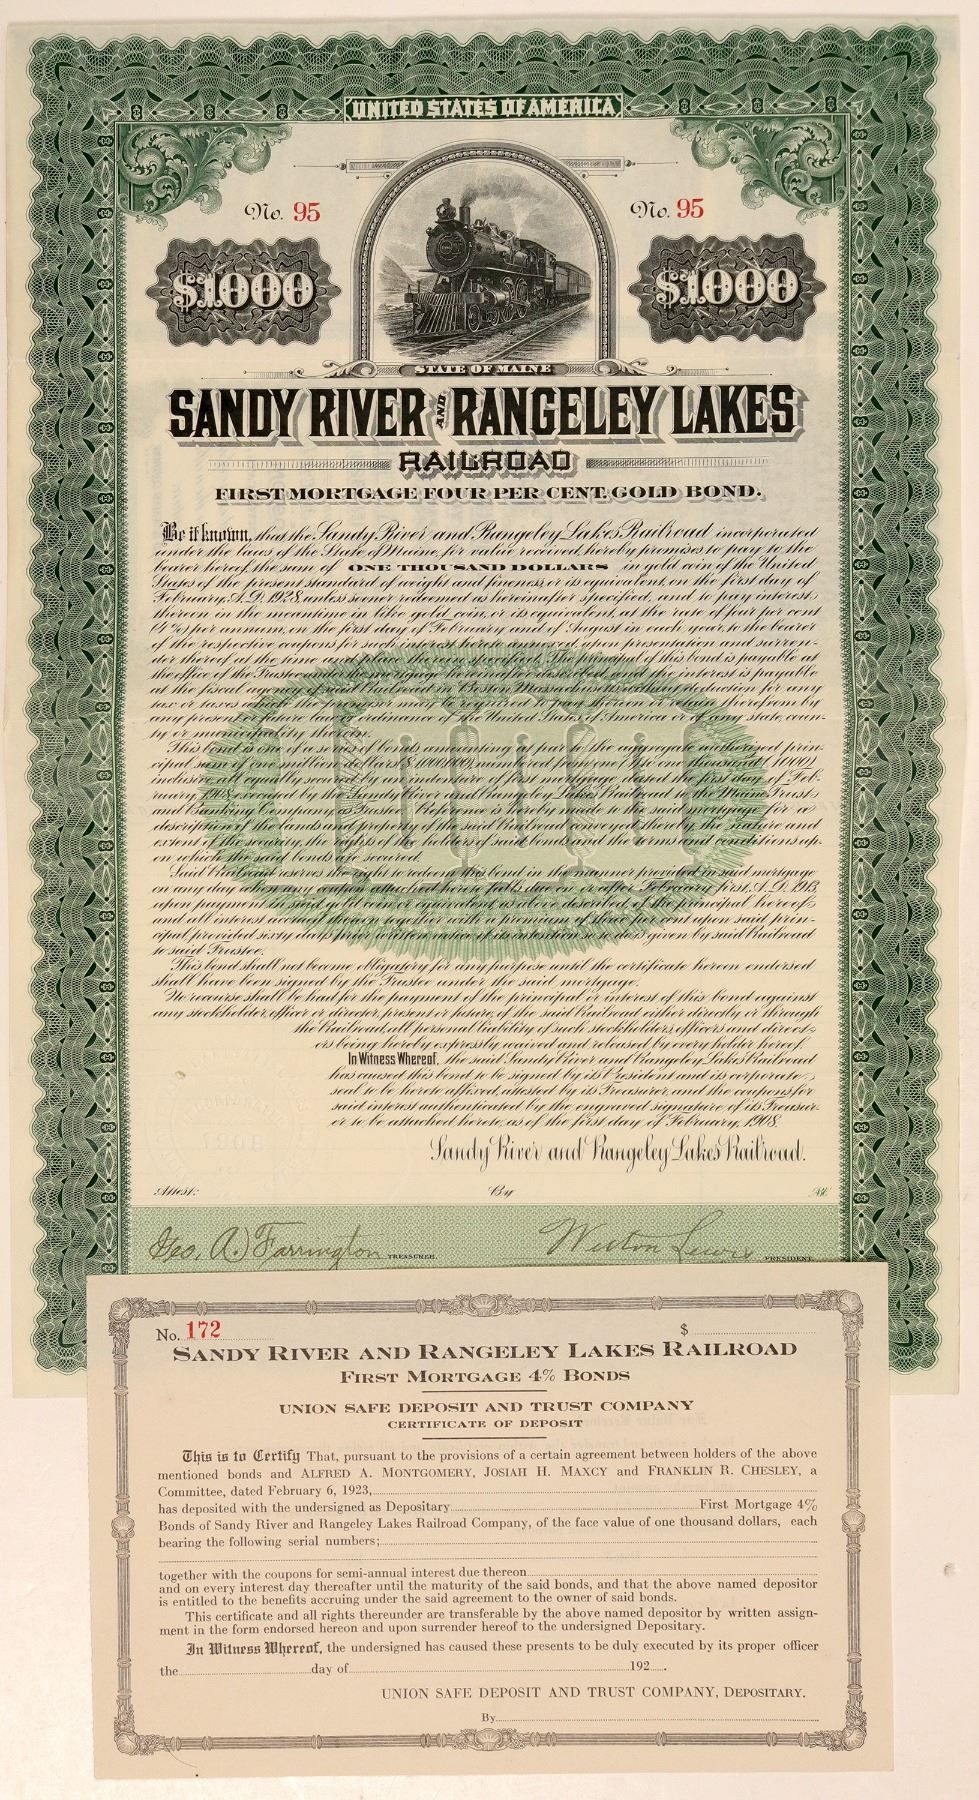 UNITED STATES OF AMERICA
No. 95
No. 95
$1000
$1000
STATE OF MAINE
SANDY RIVER AND RANGELEY LAKES
RAILROAD
FIRST MORTGAGE FOUR PER CENT. GOLD BOND.
Be it known, that the Sandy River and Rangeley Lakes Railroad incorporated
under the laws of the State of Maine, for value received, hereby promises to pay to the
bearer hereof, the sum of ONE THOUSAND DOLLARS in gold coin of the United
States of the present standard of weight and fineness, or its equivalent, on the first day of
February, A.D. 1928, unless sooner redeemed as hereinafter specified, and to pay interest
thereon in the meantime in like gold coin, or its equivalent, at the rate of four per cent
(4%) per annum, on the first day of February and of August in each year, to the bearer
of the respective coupons for such interest hereto annexed, upon presentation and surren-
der thereof at the time and place therein specified. The principal of this bond is payable at
the office of the Trustee under the mortgage hereinafter described and the interest is payable
at the fiscal agency of said Railroad in Boston, Massachusetts, without deduction for any
tax or taxes which the payor may be required to pay thereon or retain therefrom by
any present or future law or ordinance of the United States of America or of any state, coun-
ty or municipality therein.
This bond is one of a series of bonds amounting at par to the aggregate authorized prin-
cipal sum of one million dollars ($1,000,000) numbered from one (1) to one thousand (1000)
inclusive, all equally secured by an indenture of first mortgage, dated the first day of Feb-
ruary, 1908, executed by the Sandy River and Rangeley Lakes Railroad to the Maine Trust
and Banking Company, as Trustee. Reference is hereby made to the said mortgage for a
description of the lands and property of the said Railroad conveyed thereby, the nature and
extent of the security, the rights of the holders of said bonds and the terms and conditions up-
on which the said bonds are secured.
Said Railroad reserves the right to redeem this bond in the manner provided in said mortgage
on any day when any coupon attached hereto falls due on or after February first, A.D. 1913,
upon payment in said gold coin or equivalent, as above described, of the principal hereof,
and all interest accrued thereon together with a premium of three per cent upon said prin-
cipal, provided sixty days prior written notice of its intention so to do is given by said Railroad
to said Trustee.
This bond shall not become obligatory for any purpose until the certificate hereon endorsed
shall have been signed by the Trustee under the said mortgage.
No recourse shall be had for the payment of the principal or interest of this bond against
any stockholder, officer or director, present or future, of the said Railroad either directly or through
the Railroad, all personal liability of such stockholders, officers and direct-
ors being hereby expressly waived and released by every holder hereof.
In Witness Whereof, the said Sandy River and Rangeley Lakes Railroad
has caused this bond to be signed by its President and its corporate
seal to be hereto affixed, attested by its Treasurer, and the coupons for
said interest authenticated by the engraved signature of its Treasur-
er to be attached hereto, as of the first day of February, 1908.
Sandy River and Rangeley Lakes Railroad.
Attest: By
Geo. A. Farrington TREASURER. Weston Lewis PRESIDENT.
No. 172 $
SANDY RIVER AND RANGELEY LAKES RAILROAD
FIRST MORTGAGE 4% BONDS
UNION SAFE DEPOSIT AND TRUST COMPANY
CERTIFICATE OF DEPOSIT
This is to Certify That, pursuant to the provisions of a certain agreement between holders of the above
mentioned bonds and ALFRED A. MONTGOMERY, JOSIAH H. MAXCY and FRANKLIN R. CHESLEY, a
Committee, dated February 6, 1923,
has deposited with the undersigned as Depositary First Mortgage 4%
Bonds of Sandy River and Rangeley Lakes Railroad Company, of the face value of one thousand dollars, each
bearing the following serial numbers;
together with the coupons for semi-annual interest due thereon
and on every interest day thereafter until the maturity of the said bonds, and that the above named depositor
is entitled to the benefits accruing under the said agreement to the owner of said bonds.
This certificate and all rights thereunder are transferable by the above named depositor by written assign-
ment in the form endorsed hereon and upon surrender hereof to the undersigned Depositary.
In Witness Whereof, the undersigned has caused these presents to be duly executed by its proper officer
the day of 192 .
UNION SAFE DEPOSIT AND TRUST COMPANY, DEPOSITARY.
By